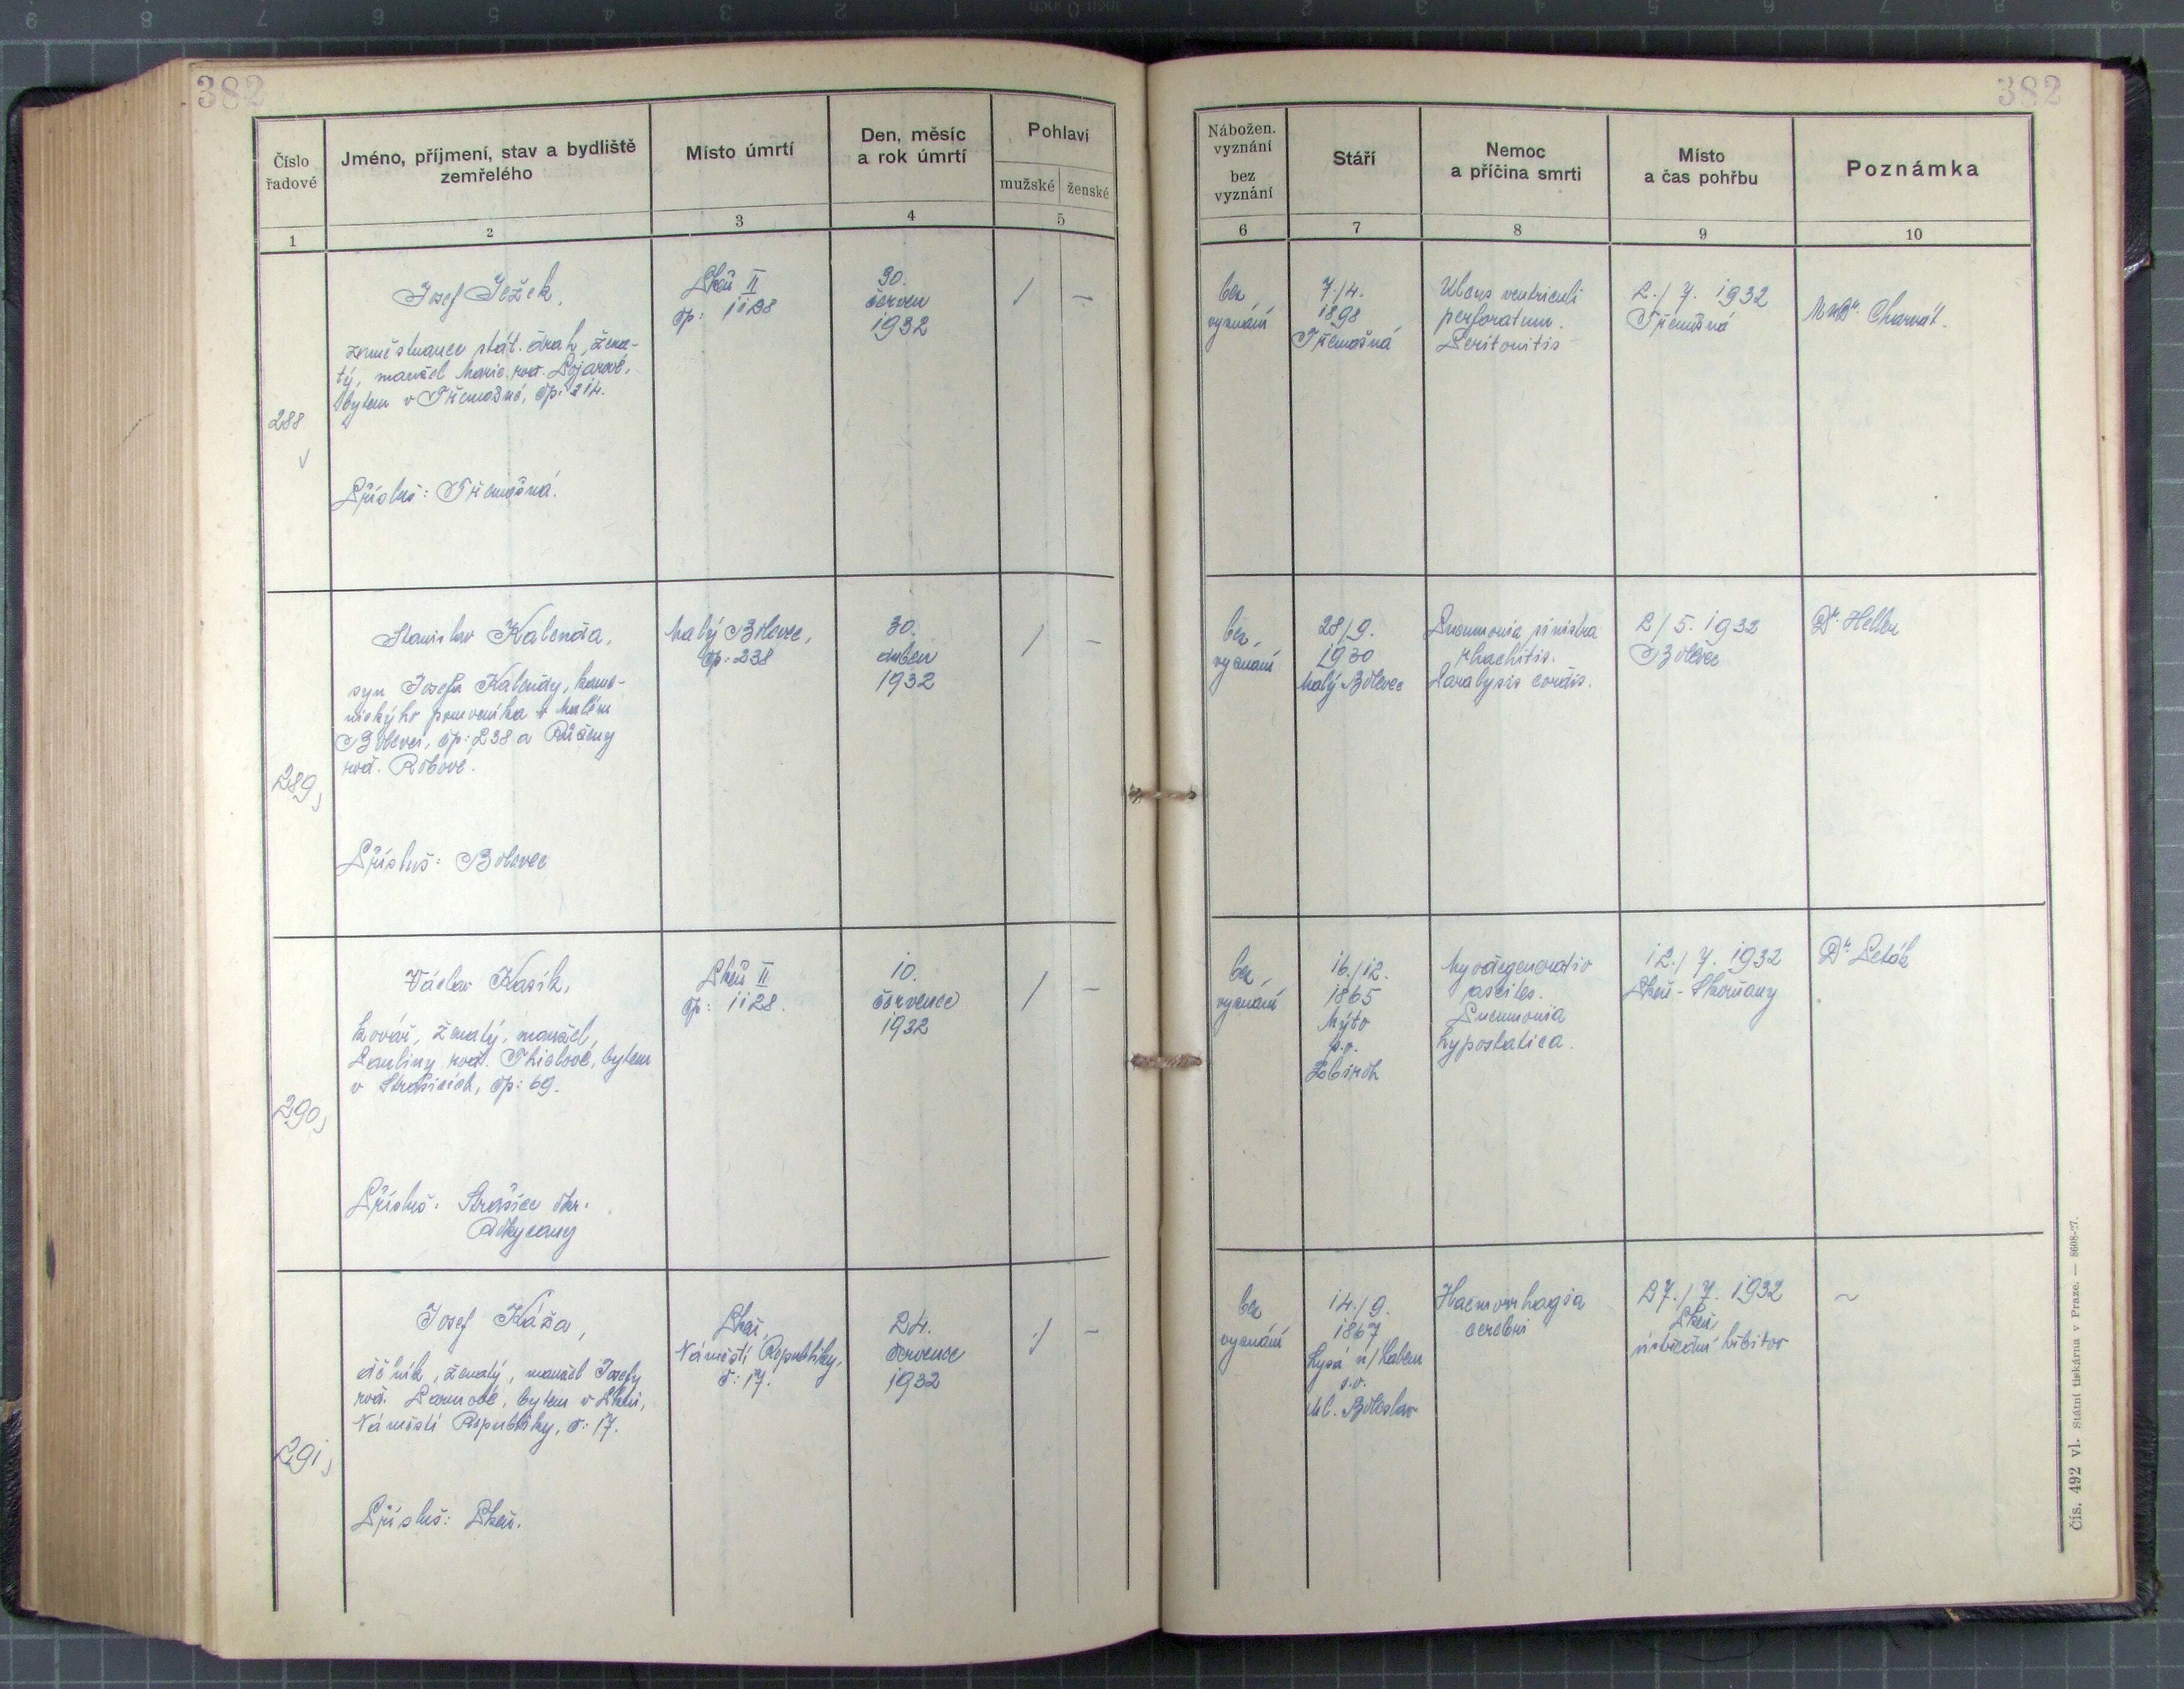 382
382
Číslo řadové
Jméno, příjmení, stav a bydliště zemřelého
Místo úmrtí
Den, měsíc a rok úmrtí
Pohlaví
mužské
ženské
Nábožen. vyznání
bez vyznání
Stáří
Nemoc a příčina smrti
Místo a čas pohřbu
Poznámka
1
2
3
4
5
6
7
8
9
10
288
Josef Ježek,
zaměstnanec stát. drah, žena-
tý, manžel Marie roz.
bytem v Třemošné, čp: 214.
Přísluš: Třemošná.
Plzeň II
čp: 1128
30.
červen
1932
/
–
bez
vyznání
7./4.
1898
Třemošná
Ulcus ventriculi
perforatum.
Peritonitis
2./7. 1932
Třemošná
MUDr. Charvát.
289
Stanislav Kalenda,
syn Josefa Kalendy, kame-
nického pomocníka v Malém
Bolevci, čp: 238 a Růženy
roz.
Přísluš: Bolevec
Malý Bolevec,
čp: 238
30.
duben
1932
/
–
bez
vyznání
28/9.
1930
Malý Bolevec
Pneumonia sinistra
rhachitis.
Paralysis cordis.
2/5. 1932
Bolevec
Dr. Heller
290
Václav Kasík,
kovář, ženatý, manžel
Pauliny roz. bytem
v Strašicích, čp: 69.
Přísluš: Strašice okr.
Rokycany
Plzeň II
čp: 1128.
10.
července
1932
/
–
bez
vyznání
16./12.
1865
Mýto
p.o.
Zbiroh
Myodegeneratio
ascites.
Pneumonia
hypostatica.
12./7. 1932
Plzeň - Skvrňany
Dr. Leták
291
Josef Káža,
číšník, ženatý, manžel Josefy
roz. bytem v Plzni,
Náměstí Republiky, č: 17.
Přísluš: Plzeň.
Plzeň,
Náměstí Republiky,
č: 17.
24.
července
1932
/
–
bez
vyznání
14./9.
1867
Lysá n/Labem
Ml. Boleslav
Haemorrhagia
cerebri
27./7. 1932
Plzeň
ústřední hřbitov
~
Čís. 492 vl. Státní tiskárna v Praze. — 8608-27.